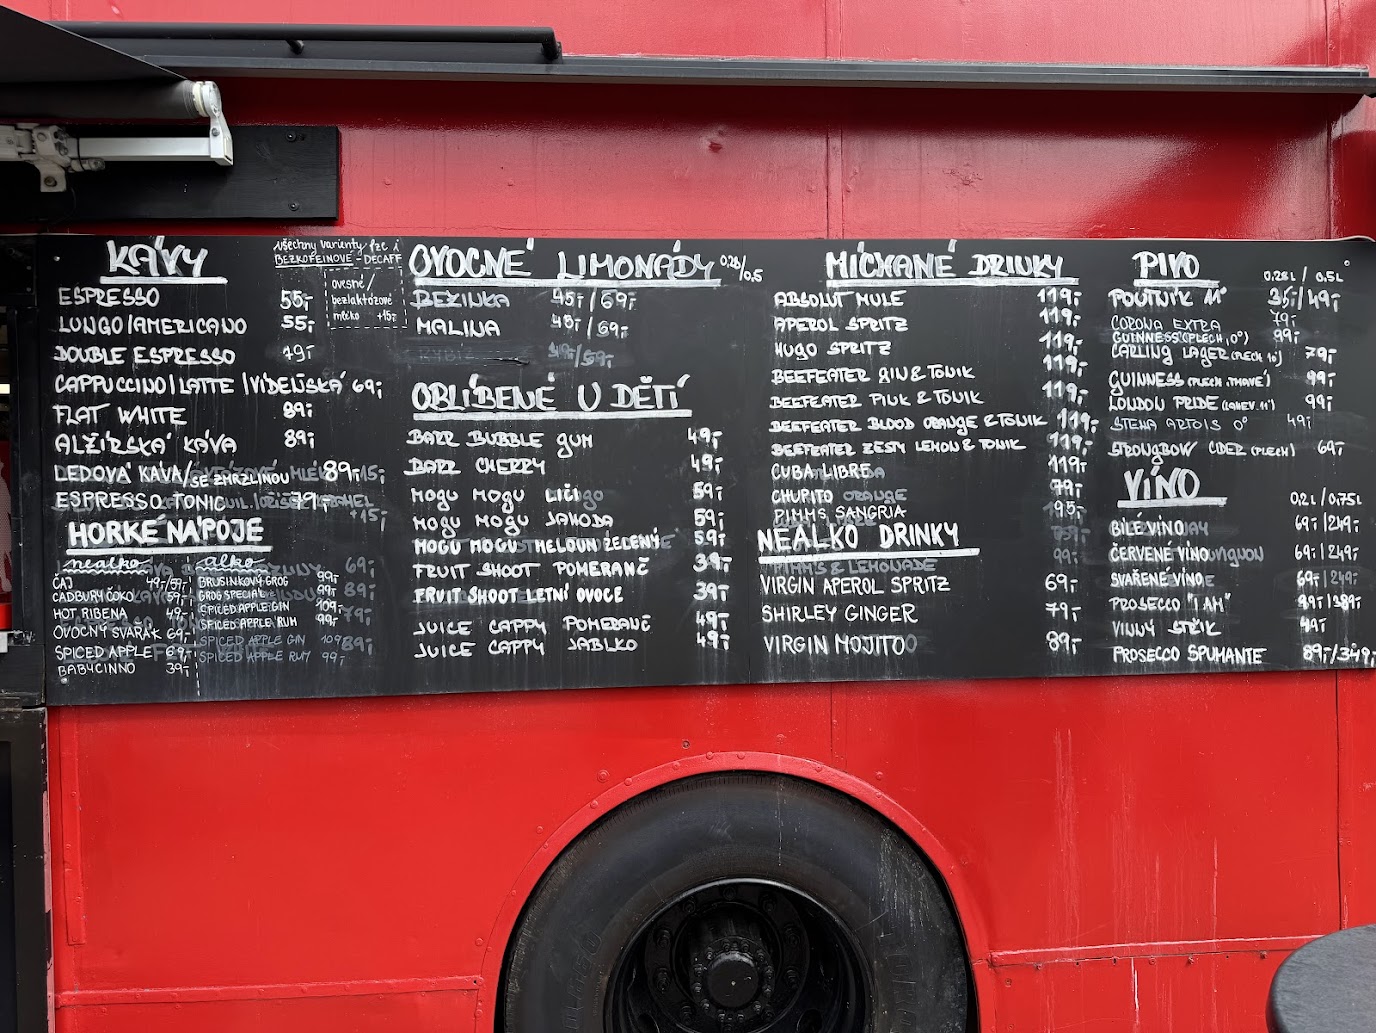 KÁVY
všechny varianty lze i
BEZKOFEINOVÉ - DECAFF
ovesné/
bezlaktózové
mléko +15,-
ESPRESSO 55,-
LUNGO/AMERICANO 55,-
DOUBLE ESPRESSO 49,-
CAPPUCCINO/LATTE/VÍDEŇSKÁ 69,-
FLAT WHITE 89,-
ALŽÍRSKÁ KÁVA 89,-
LEDOVÁ KÁVA/SE ZMRZLINOU 89,-
ESPRESSO TONIC 79,-
HORKÉ NÁPOJE
nealko
ČAJ 49,-/59,-
CADBURY ČOKO 59,-
HOT RIBENA 49,-
OVOCNÝ SVAŘÁK 69,-
SPICED APPLE 69,-
BABYCINNO 39,-
alko
BRUSINKOVÝ GROG 99,-
GROG SPECIAL 99,-
SPICED APPLE GIN 109,-
SPICED APPLE RUM 99,-
SPICED APPLE GIN 109,-
SPICED APPLE RUM 99,-
OVOCNÉ LIMONÁDY 0,26/0,5
BEZINKA 45,-/69,-
MALINA 45,-/69,-
OBLÍBENÉ U DĚTÍ
BARR BUBBLE GUM 49,-
BARR CHERRY 49,-
MOGU MOGU LIČI 59,-
MOGU MOGU JAHODA 59,-
MOGU MOGU MELOUN ZELENÝ 59,-
FRUIT SHOOT POMERANČ 39,-
FRUIT SHOOT LETNÍ OVOCE 39,-
JUICE CAPPY POMERANČ 49,-
JUICE CAPPY JABLKO 49,-
MÍCHANÉ DRINKY
ABSOLUT MULE 119,-
APEROL SPRITZ 119,-
HUGO SPRITZ 119,-
BEEFEATER GIN & TONIK 119,-
BEEFEATER PINK & TONIK 119,-
BEEFEATER BLOOD ORANGE & TONIK 119,-
BEEFEATER ZESTY LEMON & TONIK 119,-
CUBA LIBRE 119,-
CHUPITO 79,-
PIMMS SANGRIA 195,-
NEALKO DRINKY
VIRGIN APEROL SPRITZ 69,-
SHIRLEY GINGER 79,-
VIRGIN MOJITO 89,-
PIVO 0,28L / 0,5L
POUTNÍK 11° 35,-/49,-
CORONA EXTRA 79,-
GUINNESS (PLECH, 0°) 99,-
CARLING LAGER (PLECH 10°) 79,-
GUINNESS (PLECH, TMAVÉ) 99,-
LONDON PRIDE (LAHEV. 11°) 99,-
STELLA ARTOIS 0° 49,-
STRONGBOW CIDER (PLECH) 69,-
VÍNO 0,2L / 0,75L
BÍLÉ VÍNO 69,-/249,-
ČERVENÉ VÍNO 69,-/249,-
SVAŘENÉ VÍNO 69,-/249,-
PROSECCO "I AM" 99,-/389,-
VINNÝ STŘIK 49,-
PROSECCO SPUMANTE 89,-/349,-